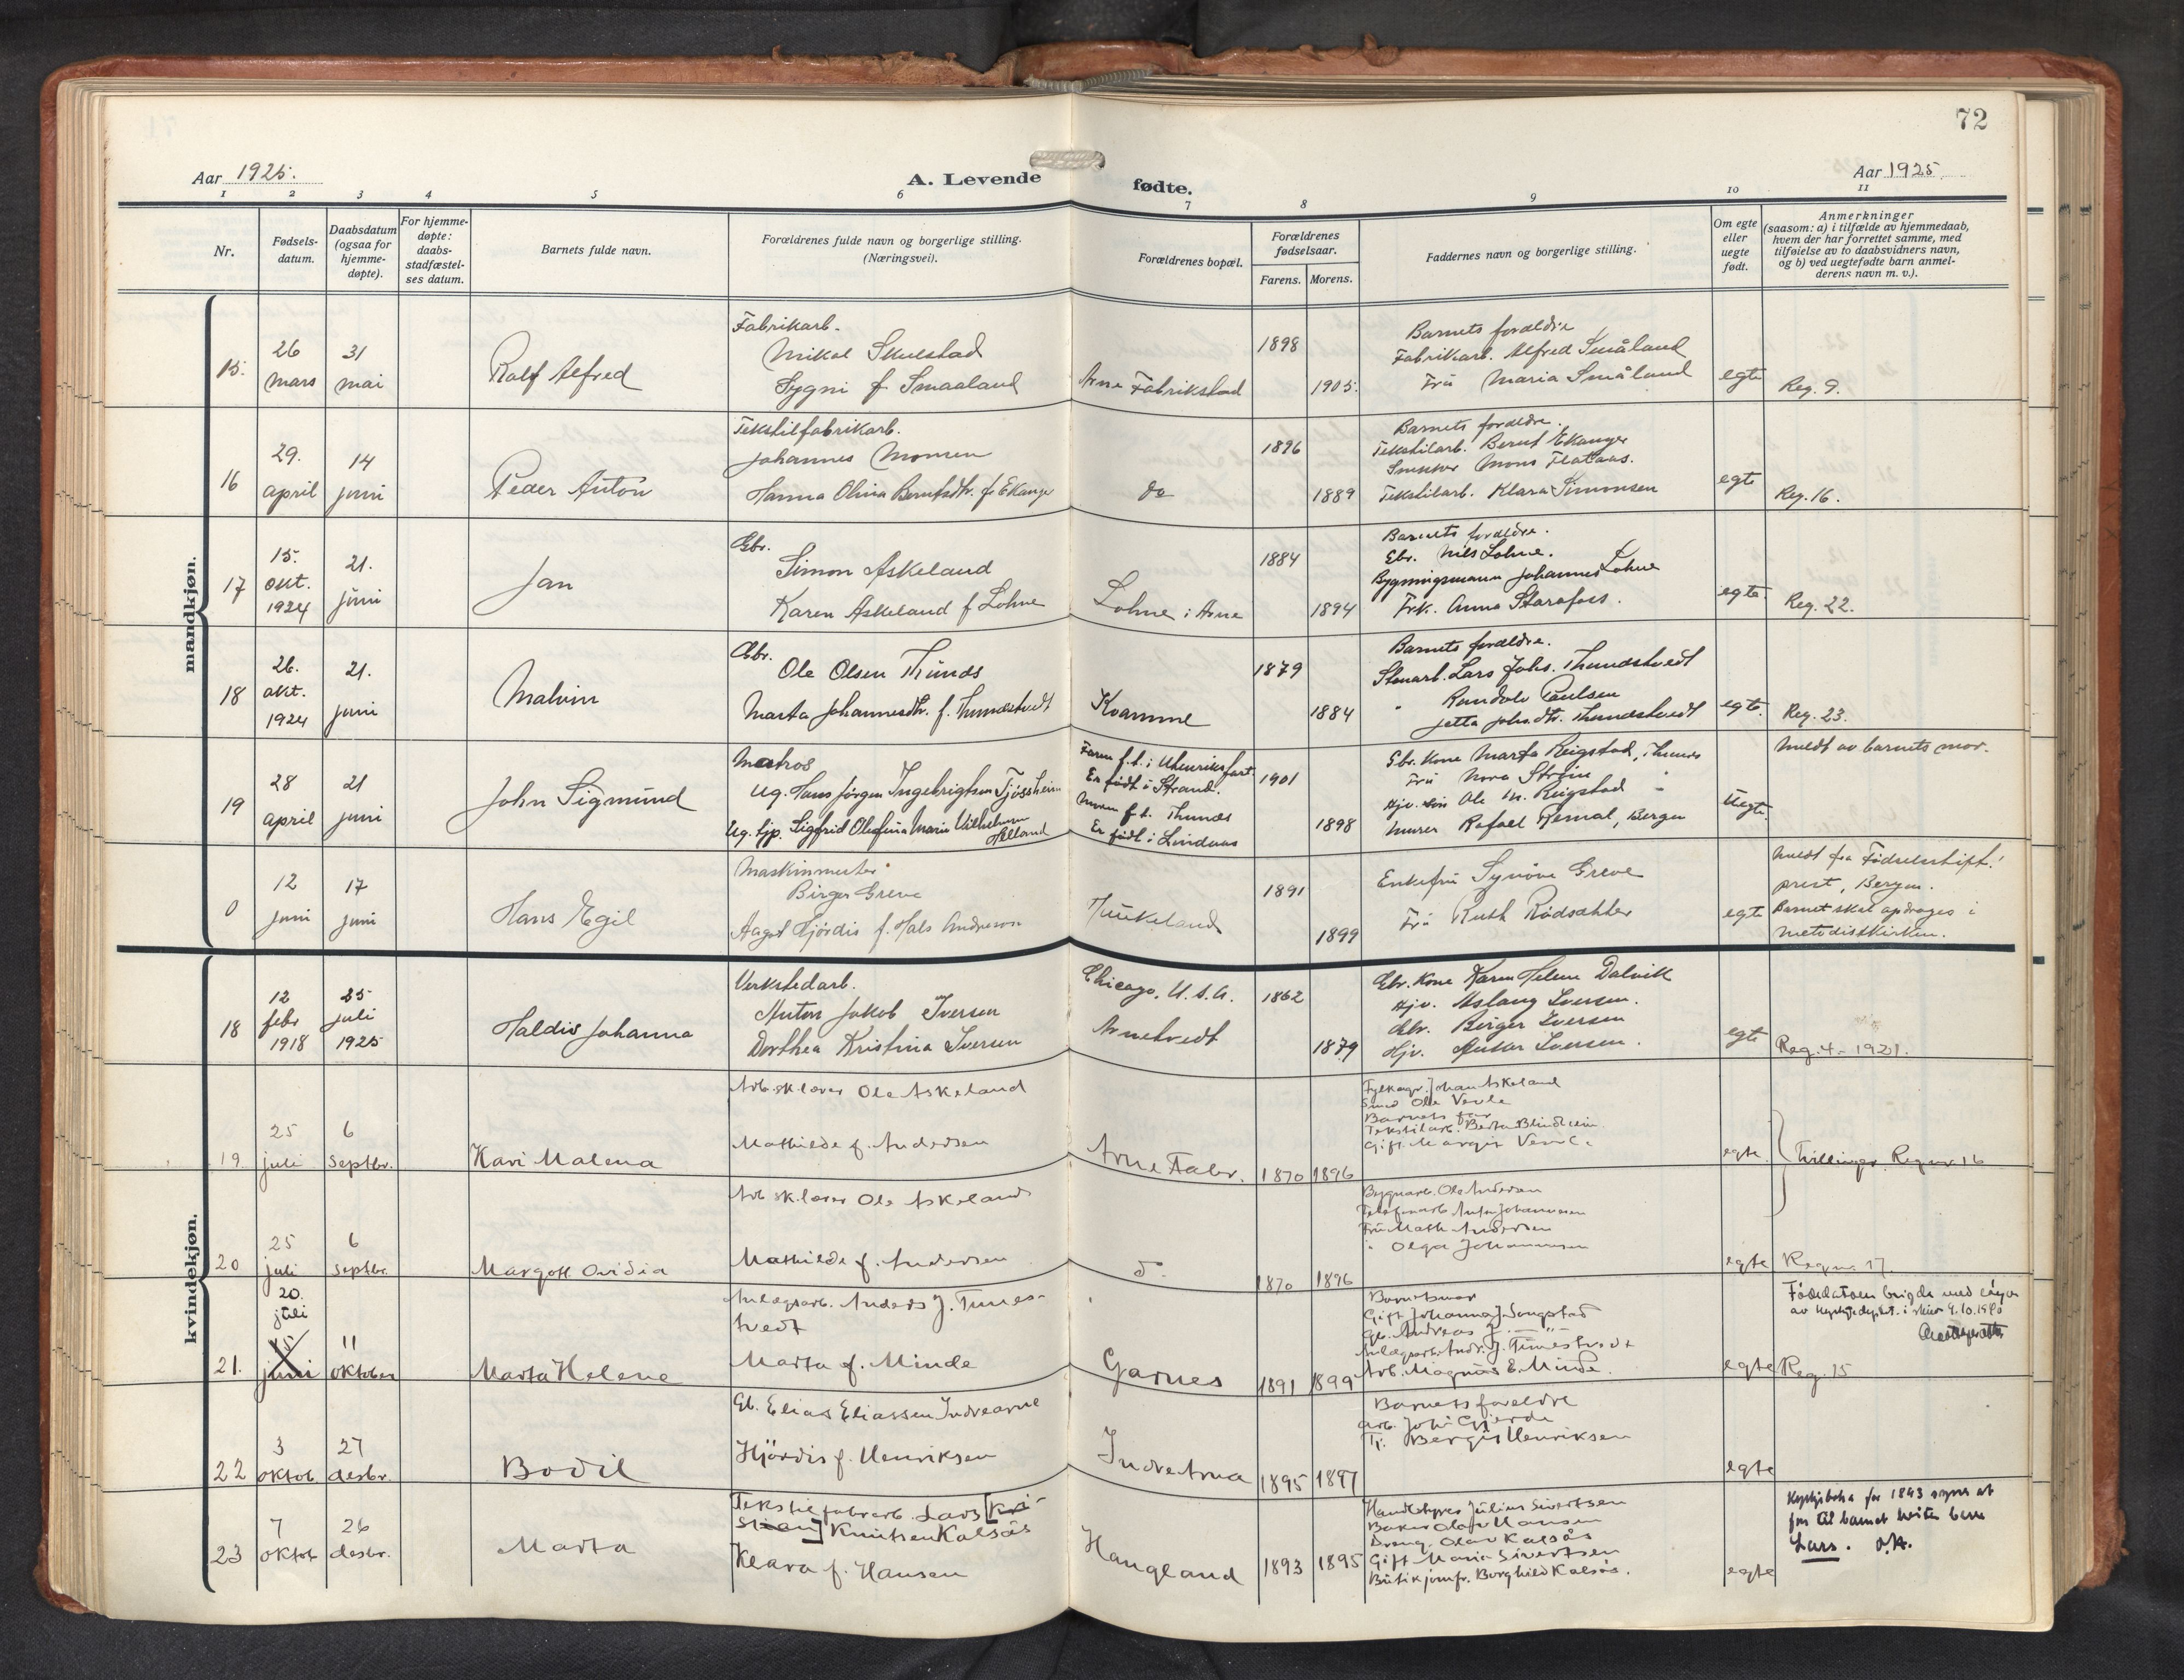 72
Aar 1925.
A. Levende fødte.
Aar 1925
1 2 3 4 5 6 7 8 9 10 11
Nr.
Fødsels-
datum.
Daabsdatum
(ogsaa for
hjemme-
døpte).
For hjemme-
døpte:
daabs-
stadfæstel-
ses datum.
Barnets fulde navn.
Forældrenes fulde navn og borgerlige stilling.
(Næringsvei).
Forældrenes bopæl.
Forældrenes
fødselsaar.
Farens. Morens.
Faddernes navn og borgerlige stilling.
Om egte
eller
uegte
født.
Anmerkninger
(saasom: a) i tilfælde av hjemmedaab,
hvem der har forrettet samme, med
tilføielse av to daabsvidners navn,
og b) ved uegtefødte barn anmel-
derens navn m. v.).
mandkjøn.
15.
26
mars
31
mai
Ralf Alfred
Fabrikarb.
Mikal Skulstad
Sygni f. Smaaland
Arne Fabrikstad
1898
1905.
Barnets forældre
Fabrikarb. Alfred Småland
Frü Maria Småland
egte
Reg. 9.
16
29.
april
14
juni
Peder Anton
Tekstilfabrikarb.
Johannes Monsen
Hanna Olina Berntsdtr. f. Ekanger
do
1896
1889
Barnets forældre.
Tekstilarb. Bernt Ekanger
Snekker Mons Flataas.
Tekstilarb. Klara Simonsen
egte
Reg. 16.
17
15.
okt.
1924
21.
juni
Jan
Gbr.
Simon Askeland
Karen Askeland f Lohne
Lohne i Arne
1884
1894
Barnets forældre.
Gbr. Nils Lohne.
Bygningsmann Johannes Lohne
Frk. Anna Storafors.
egte.
Reg. 22.
18
26.
okt.
1924
21.
juni
Malvin
Gbr.
Ole Olsen Thunes
Marta Johannesdtr. f. Thunestvedt
Kvamme
1879
1884
Barnets forældre.
Stenarb. Lars Johs. Thunestvedt
" Randolv Paulsen
Jetta Johs.dtr. Thunestvedt
egte.
Reg. 23.
19
28
april
21
juni
John Sigmund
Matros
Ug. Hans Jørgen Ingebrigtsen Tjøssheim
Ug. tjp. Sigfrid Olefina Marie Vilhelmsen
Alland
Faren f. t. i Utenriksfart.
Er født i Strand.
Moren f. t. Thunes
Er født i Lindaas
1901
1898
Gbr. kone Marta Reigstad, Thunes
Frü Nora Strøm "
Gjv. søn Ole M. Reigstad "
Murer Rafael Remal, Bergen
Uegte.
Meldt av barnets mor.
0
12
juni
17
juni
Hans Egil
Maskinmester
Birger Greve
Aagot Hjørdis f. Hals Andreson
Haukeland
1891
1899
Enkefrü Synöve Greve
Frü Ruth Rødsæther
egte
Meldt fra Fødselsstift.
prest, Bergen.
Barnet skal opdrages i
metodistkirken.
kvindekjøn.
18
12
febr
1918
25
juli
1925
Haldis Johanna
Verkstedarb.
Anton Jakob Iversen
Dorthea Kristina Iversen
Chicago, U. S. A.
Arnetvedt
1862
1879
Gbr. kone Karen Helene Dalvik
Hjv. Aslaug Iversen.
Gbr. Birger Iversen
Hjv. Iversen.
egte
Reg. 4 - 1921.
19.
25
juli
6
septbr.
Kari Malena
Arb. sk.lærer Ole Askeland
Mathilde f. Andersen
Arne Fabr.
1870
1896
Fylkesgr. Johan Askeland
Smed Ole Vevle
Barnets far
Tekstilarb. Berta Blindheim
Gift. Margit Vevle
egte.
Tvillinger. Reg nr. 16
20
25
juli
6
septbr.
Margoth Ovidia
Arb. sk.lærer Ole Askeland
Mathilde f. Andersen
do
1870
1896
Bygnarb. Ole Andersen
Telefonarb Anton Johannesen
Frü Math Andersen
" Olga Johannesen
egte
Reg nr. 17.
21.
20.
juli
15
juni
11
oktober
Marta Helene
Anlægsarb. Anders J. Tunes-
tvedt
Marta f. Minde
Garnes
1891
1899
Barnets mor
Gift Johanna J. Songstad
Gb. Andreas J. "
Anlægsarb. Andr. J. Tunestvedt
Arb. Magnus E. Minde.
egte
Fødedatoen brigda med løyve
av kyrkjedept. i skriv 4.10.1980
Reg. 15
22
3
oktob.
27
desbr.
Bodil
Gb. Elias Eliassen Indrearne
Hjördis f. Henriksen
Indre Arna
1895
1897
Barnets foreldre
Arb. Joh. Gjerde
Tj. Bergit Henriksen
egte
23
7
oktob
26
desbr.
Marta
Tekstilfabrarb. Lars [Kri-
stian] Knutsen Kalsås
Klara f. Hansen
Haugland
1893
1895
Handelsgres Julius Sivertsen
Baker Olaf Hansen
Dreng. Olav Kalsås
Gift Maria Sivertsen
Butikjomfr. Borghild Kalsås.
egte
Kyrkjeboka for 1893 syner at
far til barnet heiter bere
Lars. O.A.